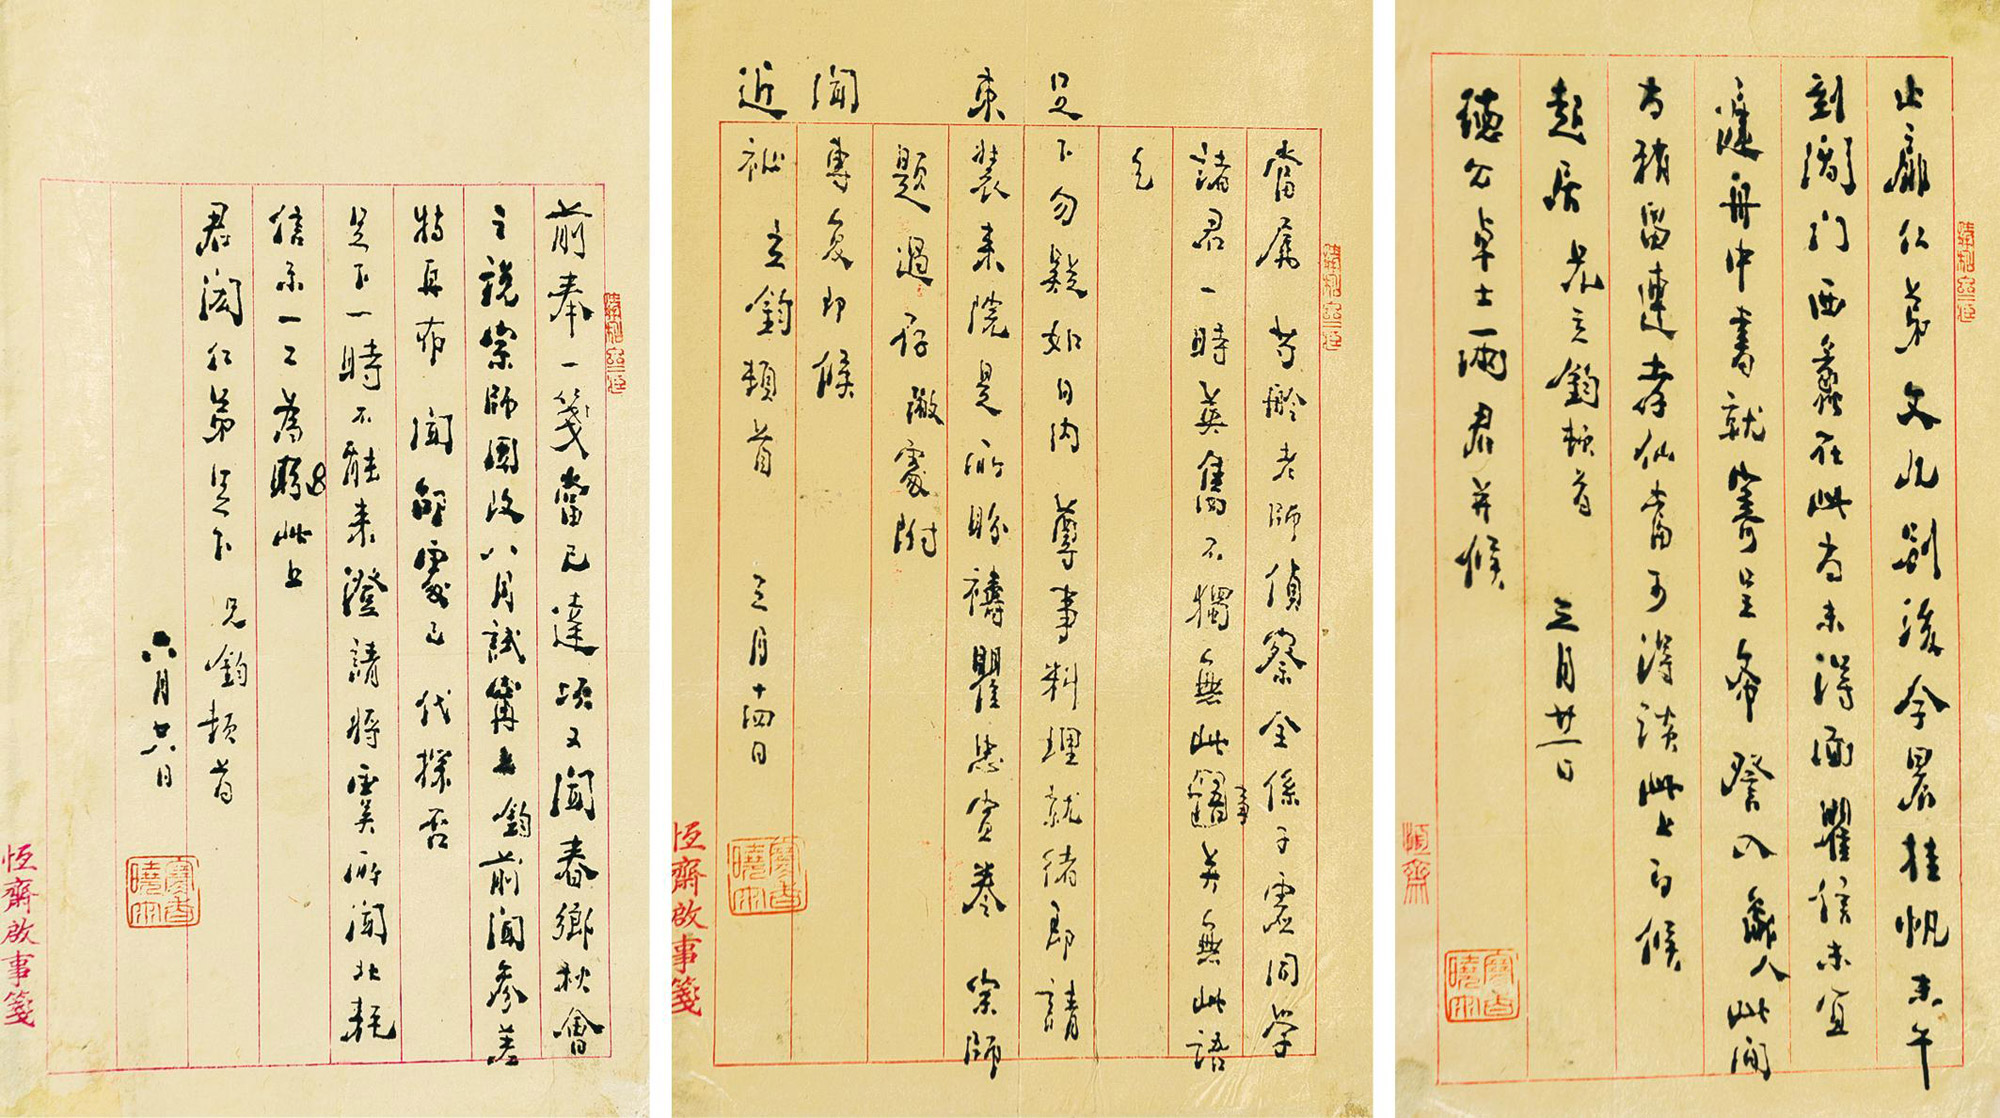 止扉仁弟文几別後今晨挂帆未午
到閶門西蠡在此尚未得面瞿信未宜
遽舟中書就寄呈希詧入 此間
尚稍留連孝仙當可得談此上即候
起居 兄立鈞頓首 三月廿一日
聽公卓士一琍君并候
恆齋
當屬芍齡老師偵察全係子虛同學
諸君一時英雋不獨無此事并無此語
乞
足下勿疑如日內 尊事料理就緒即請
束裝來院是所盼禱瞿 卷 宗師
題過存繳處附
聞專复即候
近祉 立鈞頓首 三月十四日
恆齋啟事箋
前奉一箋當已達頃又聞春鄉秋會
之說宗師聞改八月試常去鈞前聞參差
特再布 聞 處已代探否
足下一時不能來澄請將 所聞北耗
信示一二為盼此上
君閎仁弟足下 兄鈞頓首
六月廿六日
恆齋啟事箋